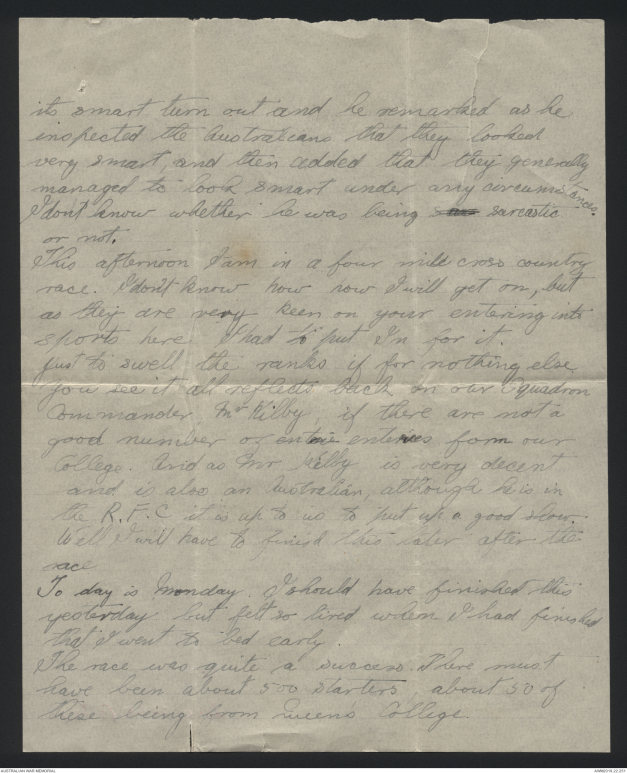 its smart turn out and he remarked as he
inspected the Australians that they looked
very smart, and then added that they generally
managed to look smart under any circumstances.
I don't know whether he was being sarcastic
or not.
This afternoon I am in a four mile cross country
race. I don't know how now I will get on, but
as they are very keen on your entering into
sports here I had to put In for it.
just to swell the ranks if for nothing else.
You see it all reflects back on our Squadron
Commander, Mr Kilby, if there are not a
good number of enteries form our
College. And as Mr Kilby is very decent
and is also an Australian, although he is in
the R.F.C it is up to us to put up a good show.
Well I will have to finish this later after the
race
To day is Monday. I should have finished this
yesterday but felt so tired when I had finished
that I went to bed early.
The race was quite a success. There must
have been about 500 starters, about 50 of
these being from Queen's College.
AUSTRALIAN WAR MEMORIAL